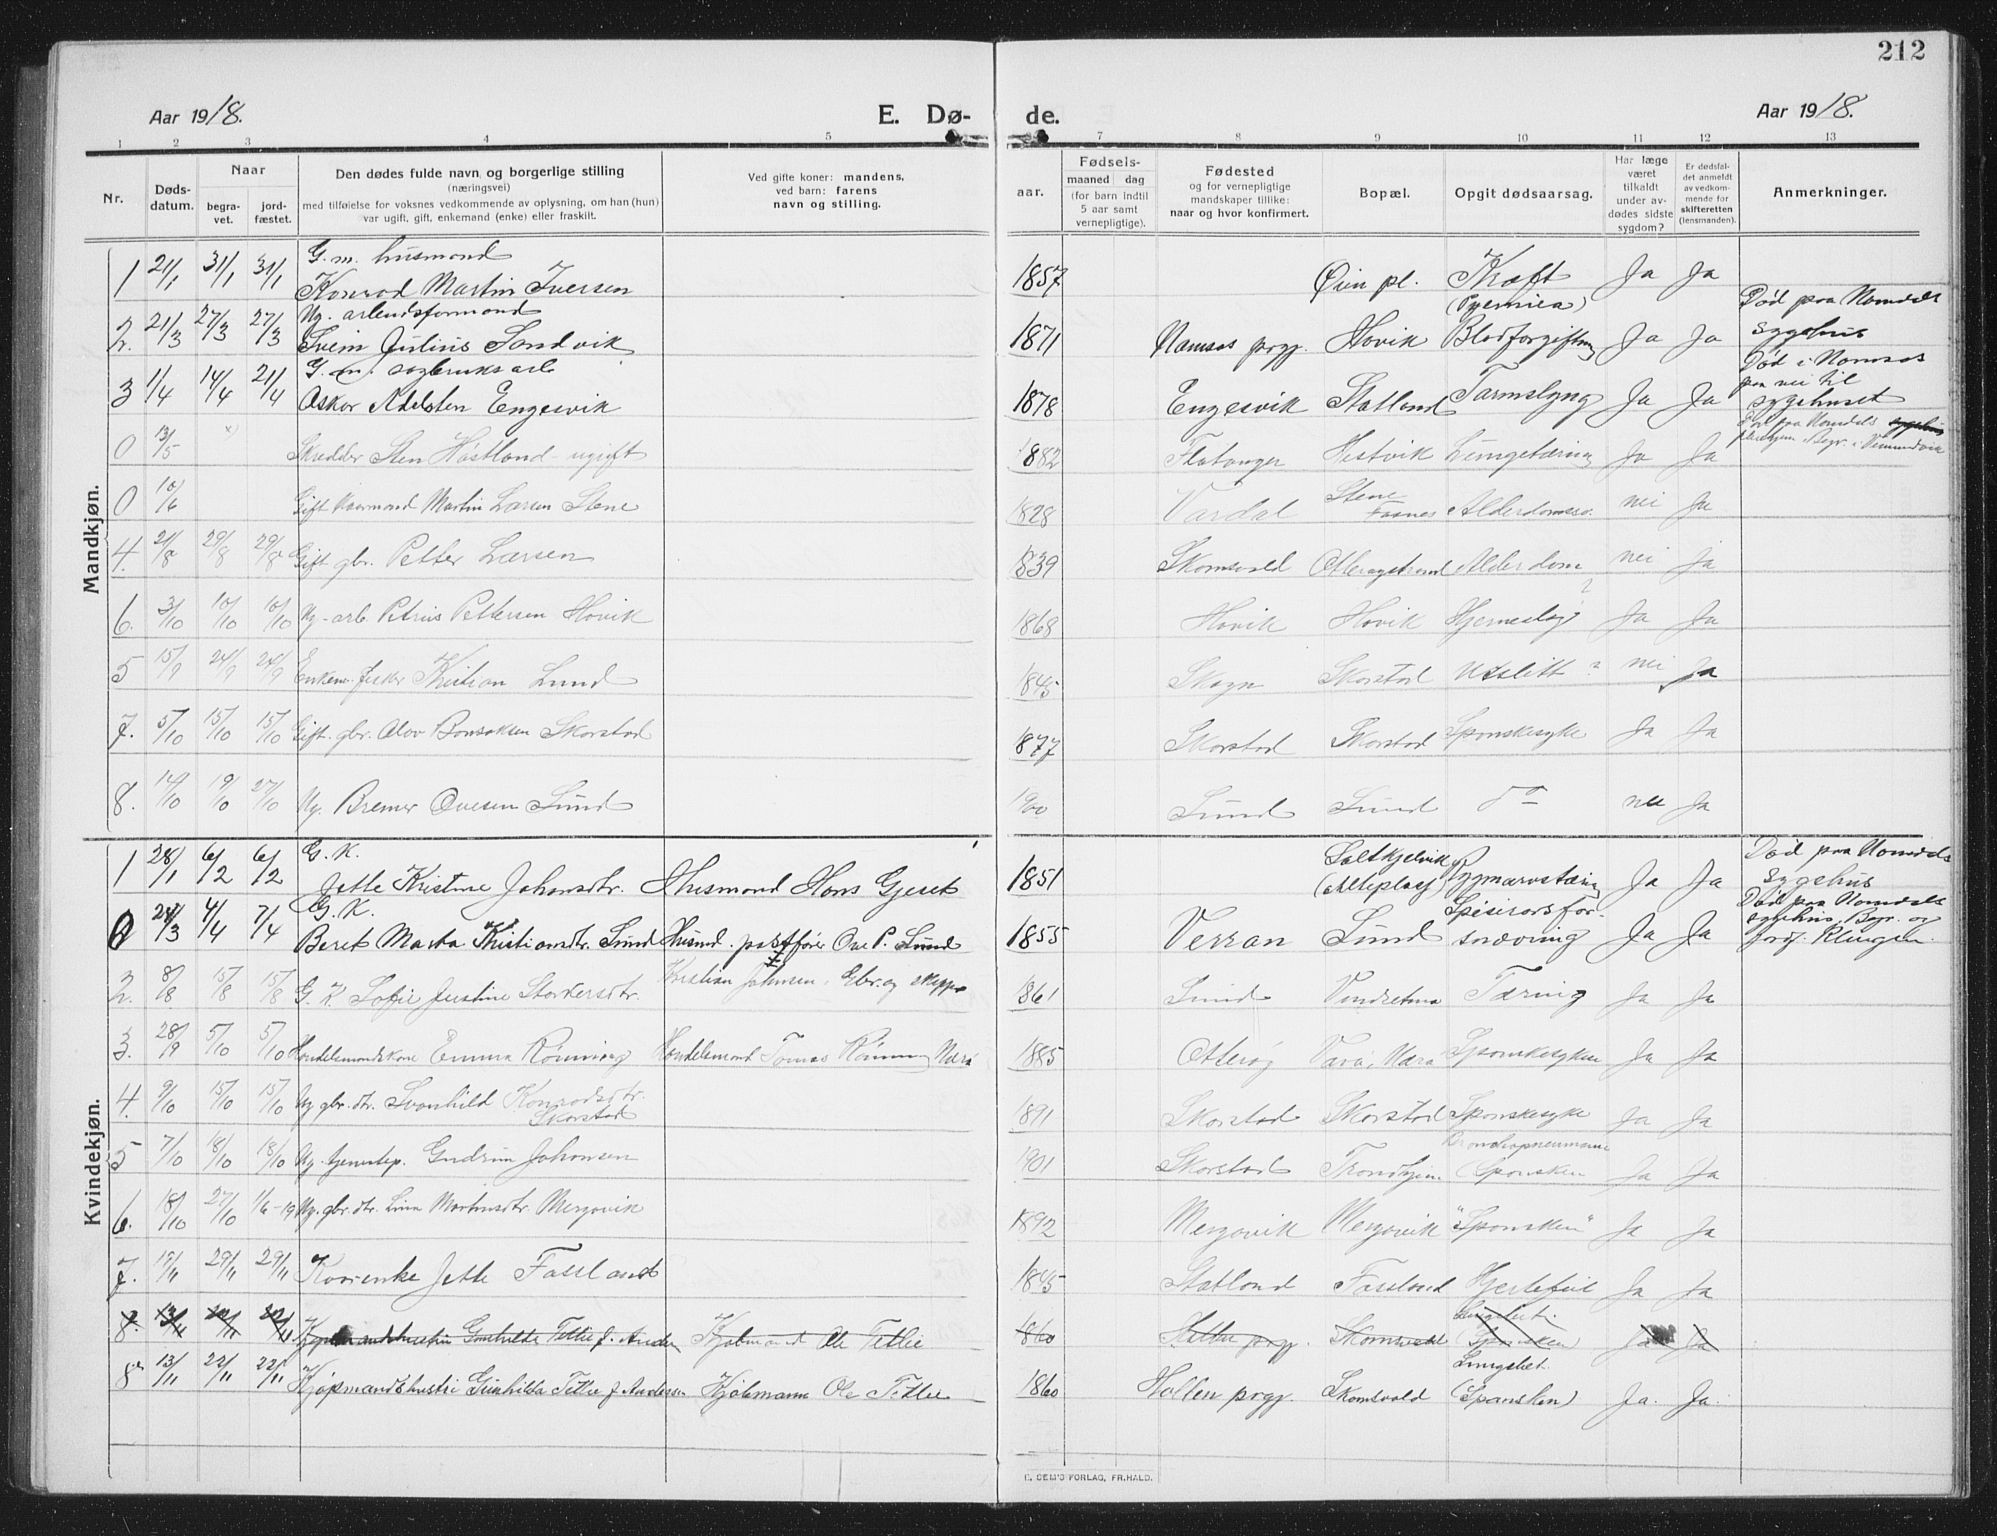 212
Aar 1918. E. Dø- de. Aar 1918.
1 2 3 4 5 7 8 9 10 11 12 13
Nr. Døds-datum. Naar begra-vet. jord-fæstet. Den dødes fulde navn og borgerlige stilling (næringsvei) med tilføielse for voksnes vedkommende av oplysning, om han (hun) var ugift, gift, enkemand (enke) eller fraskilt. Ved gifte koner: mandens, ved barn: farens navn og stilling. aar. Fødsels- maaned dag (for barn indtil 5 aar samt vernepligtige). Fødested og for vernepligtige mandskaper tillike: naar og hvor konfirmert. Bopæl. Opgit dødsaarsag. Har læge været tilkaldt under av-dødes sidste sygdom? Er dødsfal-det anmeldt av vedkom-mende for skifteretten (lensmanden). Anmerkninger.
Mandkjøn.
1 21/1 31/1 31/1 G. m. husmand Konrad Martin Iversen 1857 Øien pl. Kræft Ja Ja
2. 21/3 27/3 27/3 Ug. arbeidsformand Svein Julius Sandvik 1871 Namsos prgj. Hovik (Pyemiea) Blodforgiftning Ja Ja Død paa Namdals sygehus
3 1/4 14/4 21/4 G. m. sagbruksarb Oskar Adelsten Engesvik 1878 Engesvik Statland Tarmslyng Ja Ja Død i Namsos paa vei til sygehuset
0 13/5 x) Skrædder Sten Høstland ugift 1882 Flatanger Hestvik Lungetæring Ja Ja Død paa Namdals sygehus pleiehjem Begr. i
0 10/6 Gift Martin Larsen Stene 1828 Vardal Stene Alderdomssv. nei Ja
4. 21/8 29/8 29/8 Gift gbr. Petter Larsen 1839 Skomsvold Otterøystrand Alderdom nei ja
6. 3/10 10/10 10/10 Ug. arb Petrus Pettersen Hovik 1868 Hovik Hovik Hjerneslag? Ja Ja
5 15/9 24/9 24/9 Enkem. fisker Kristian Lund 1845 Skogn Skorstad Utslitt? nei Ja
7. 5/10 15/10 15/10 Gift. gbr. Olav Bonsaksen Skorstad 1877 Skorstad Skorstad Spanskesyke Ja Ja
8. 14/10 19/10 27/10 Ug. Bremer Ovesen Lund 1900 Lund Lund do nei Ja
Kvindekjøn.
1 28/1 6/2 6/2 G. K. Jette Kristine Johansdtr. Husmand Hans Gjeset 1851 Saltkjelvik (Alteplass) Rygmarvstæring Ja Ja Død paa Namdals sygehus
0 24/3 4/4 7/4 G. K. Beret Marta Kristiansdtr. Lund Husmd. postfører Ove P. Lund 1855 Verran Lund Spiserørsforsnævring Ja Ja Død paa Namdals sygehus. Begr. og jordf. Klingen.
2. 8/8 15/8 15/8 G. K Sofie Justine Storkersdtr. Kristian Johnsen. Gbr. og skipper 1861 Lund Vindretma Tæring Ja Ja
3. 28/9 5/10 5/10 Handelsmandskone Emma Rønning Handelsmand Tomas Rønning Næra 1885 Otterøy Vara, Næra Spanskesyken Ja Ja
4. 9/10 15/10 15/10 Ug gbr. dtr. Svanhild Konradsdtr. Skorstad 1891 Skorstad Skorstad Spanskesyke Ja Ja
5 7/10 18/10 18/10 Ug. tjenstep. Gudrun Johansen 1901 Skorstad Trondhjem Bronchopneumoni (Spansken Ja Ja
6. 18/10 27/10 1/6-19 Ug. gbr. dtr. Lina Martinusdtr. Merjavik 1892 Merjavik Merjavik "Spansken" Ja Ja
7. 19/11 29/11 29/11 Kvarenke Jette Fassland 1845 Statland Fassland Hjertefeil Ja Ja
8. 13/11 22/11 22/11 Kjøpmandshustru Gunhilda Tetlie f. Andersen Kjøbmand Ole Tetlie 1860 prgj. Skomsvold Lungebet. (Spansken) Ja Ja
8. 13/11 22/11 22/11 Kjøpmandshustru Gunhilda Tetlie f. Andersen Kjøbmann Ole Tetlie 1860 Hallen prgj. Skomsvold Lungebet. (Spansken) Ja. Ja.
E. SEM'S FORLAG, FR.HALD.